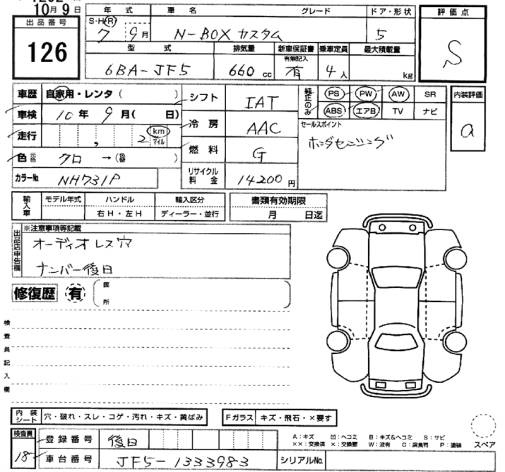 10月9日
出品番号
126
年式 車名 グレード ドア・形状
S・H(R) 7 9月 N-BOX カスタム 5
型式 排気量 新車保証書 乗車定員 最大積載量
有無記入
6BA-JF5 660cc 有 4人 kg
評価点
S
車歴 自家用・レンタ( )
車検 10年9月( 日)
走行 , 2 km マイル
色 クロ→( )
カラーNo NH731P
シフト IAT
冷房 AAC
燃料 G
リサイクル料金 14200円
PS PW AW SR
ABS エアB TV ナビ
セールスポイント
ホンダセンシング
内装評価
a
輸入車 モデル年式 ハンドル 輸入区分
右H・左H ディーラー・並行
書類有効期限
月 日迄
出品店申告欄
※注意事項等記載
オーディオレス穴
ナンバー後日
修復歴 有 箇所
検査員記入欄
内装シート 穴・破れ・スレ・コゲ・汚れ・キズ・黄ばみ
Fガラス キズ・飛石・×要す
検査員
18
登録番号 後日
車台番号 JF5-1333983
シリアルNo.
A:キズ U:ヘコミ B:キズ&ヘコミ S:サビ
××:交換済 ×:交換要 W:波有 C:腐食 P:塗装
スペア